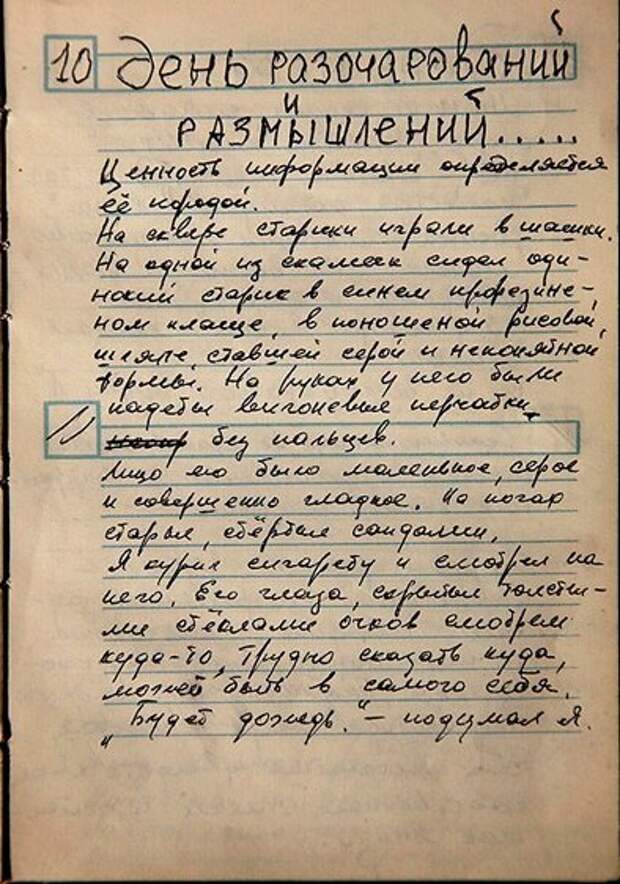 10 день разочарований
и
размышлений.....
Ценность информации определяется
её породой.
На сквере старики играли в шашки.
На одной из скамеек сидел оди-
нокий старик в синем прорезине-
ном плаще, в поношеной фисовой,
шляпе, ставшей серой и непонятной
формы. На руках у него были
надеты вигоневые перчатки
11 без пальцев.
Лицо его было маленькое, серое
и совершенно гладкое. На ногах
старые, стёртые сандалии.
Я курил сигарету и смотрел на
него. Его глаза, скрытые толсты-
ми стёклами очков смотрели
куда-то, трудно сказать куда,
может быть в самого себя.
„Будет дождь." – подумал я.